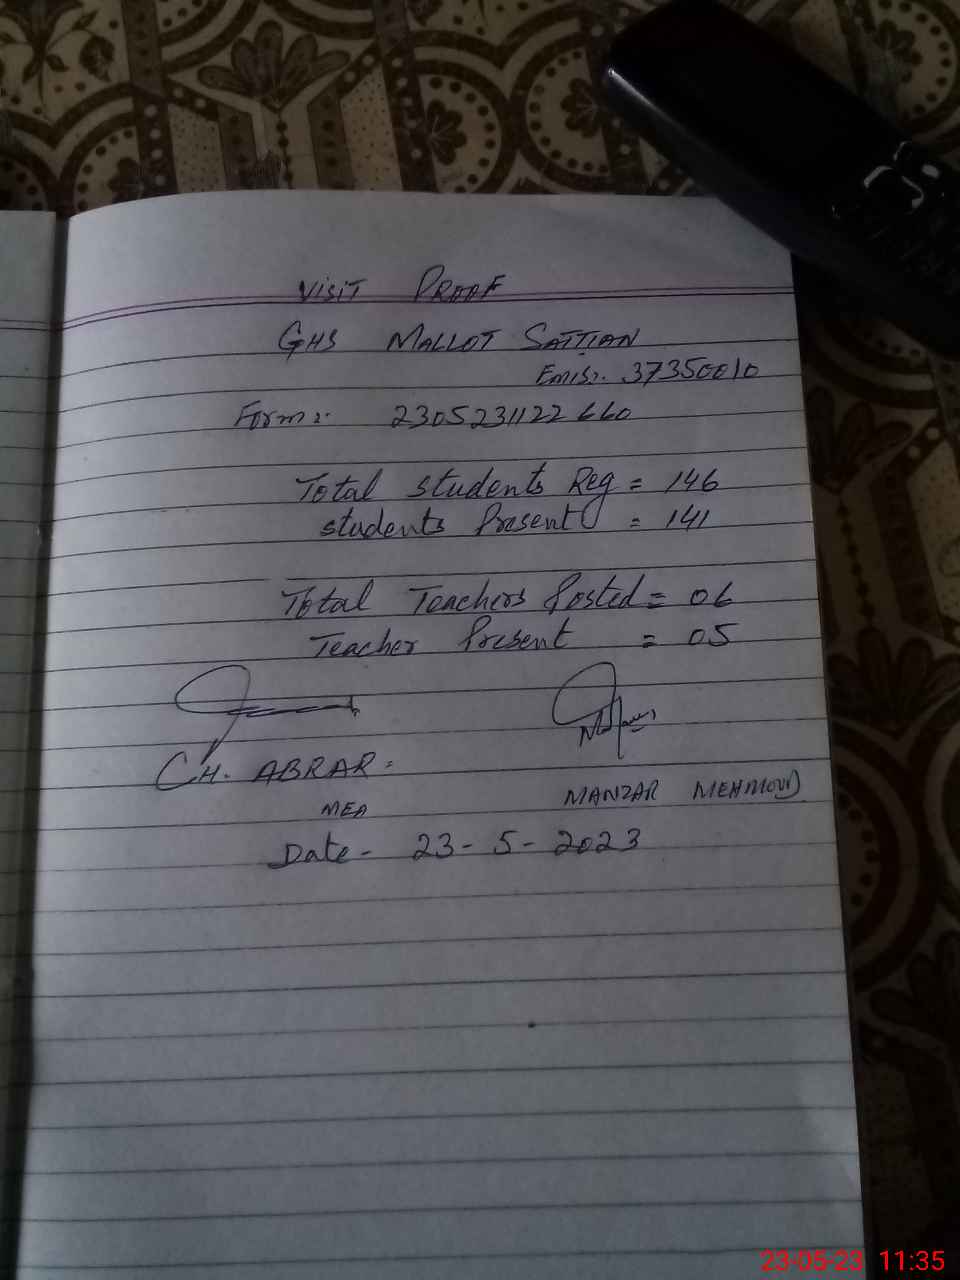 VISIT PROOF
GHS MALLOT SATTIAN
Emis:. 37350010
Form:. 2305231122660
Total students Reg = 146
students Present = 141
Total Teachers Posted = 06
Teacher Present = 05
CH. ABRAR.
MEA
MANZAR MEHMOOD
Date - 23 - 5 - 2023
23-05-23 11:35